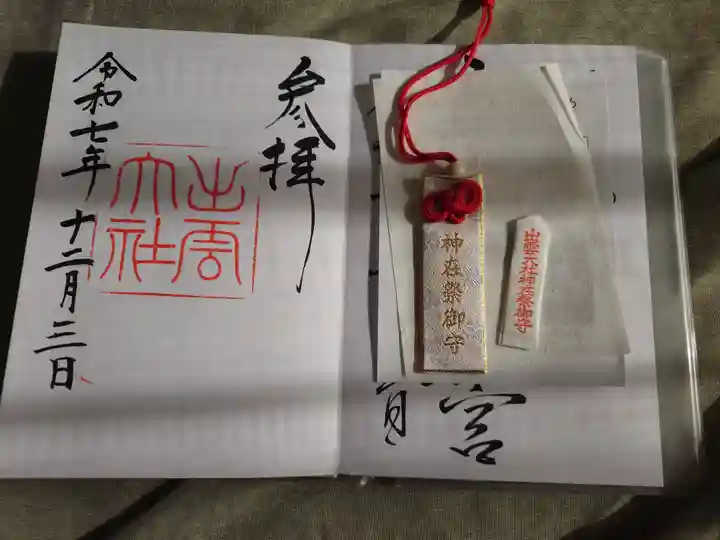 参拝
出雲
大社
令和七年十二月三日
神在祭御守
出雲大社神在祭御守
宮